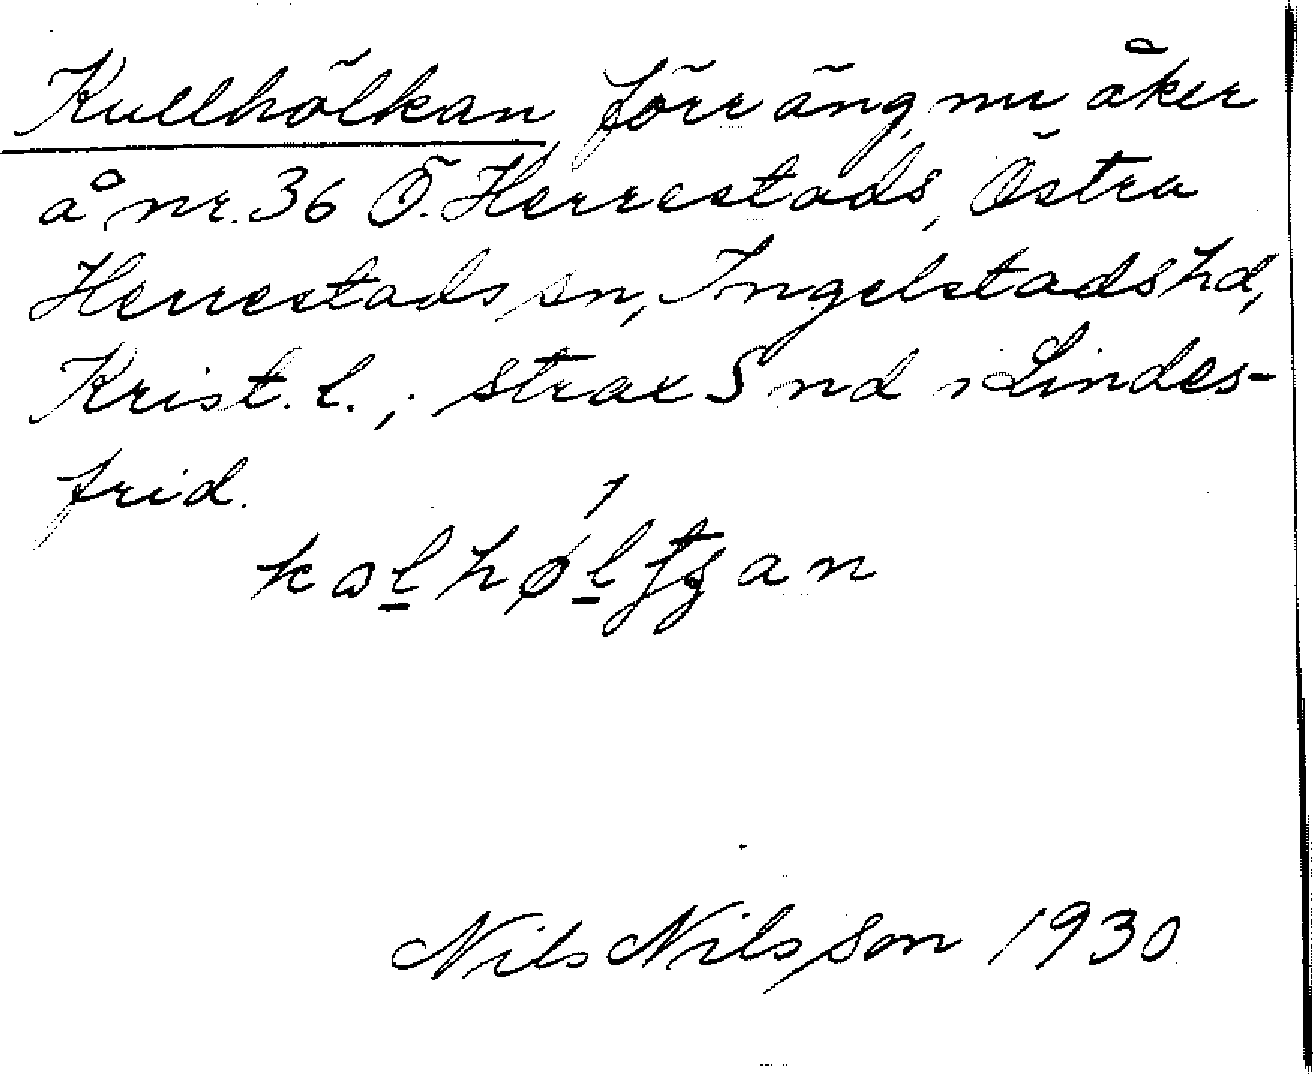 Kullhölkan, förr äng, nu åker
å nr. 36 Ö. Herrestads, Östra
Herrestads sn, Ingelstads hd,
Krist. l.; strax S nd i Lindes-
frid.
Nils Nilsson 1930